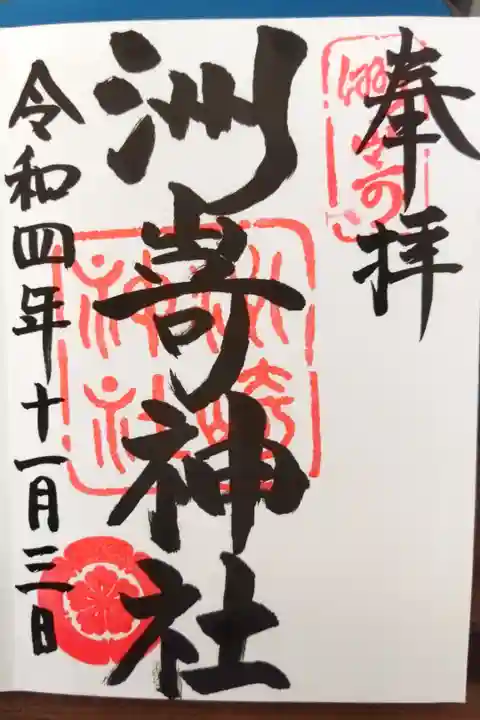 奉拝
洲嵜神社
令和四年十一月三日